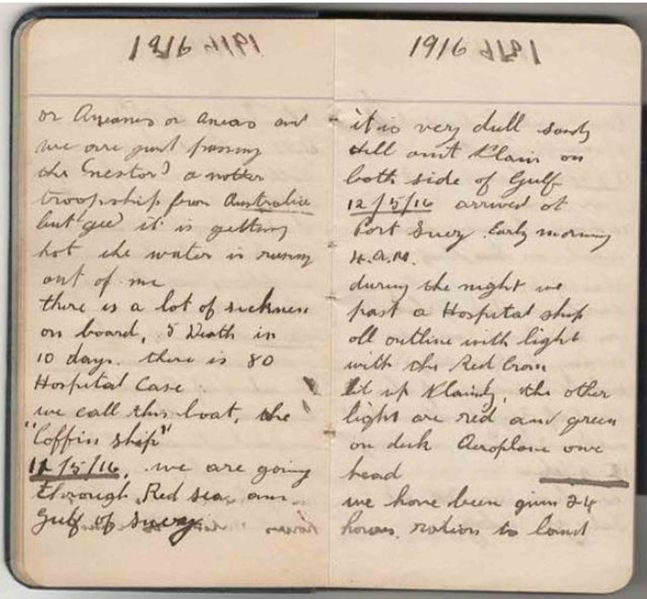 1916
or and
we are just passing
the (nestor) a nother
troopship from Australia
but gee it is getting
hot the water is runing
out of me
there is a lot of sickness
on board, 5 Death in
10 days. there is 80
Hospital Case
we call this boat, the
"Coffin ship"
11/5/16, we are going
through Red sea and
Gulf of Suezy
1916
it is very dull sandy
Hill and Plain on
both side of Gulf
12/5/16 arrived at
Port Suezy Early morning
4.a.m.
during the night we
past a Hospital ship
all outline with light
with the Red Cross
lit up Plainly, the other
light are red and green
on deck Aeroplane over
head
we have been given 24
hours ration to land